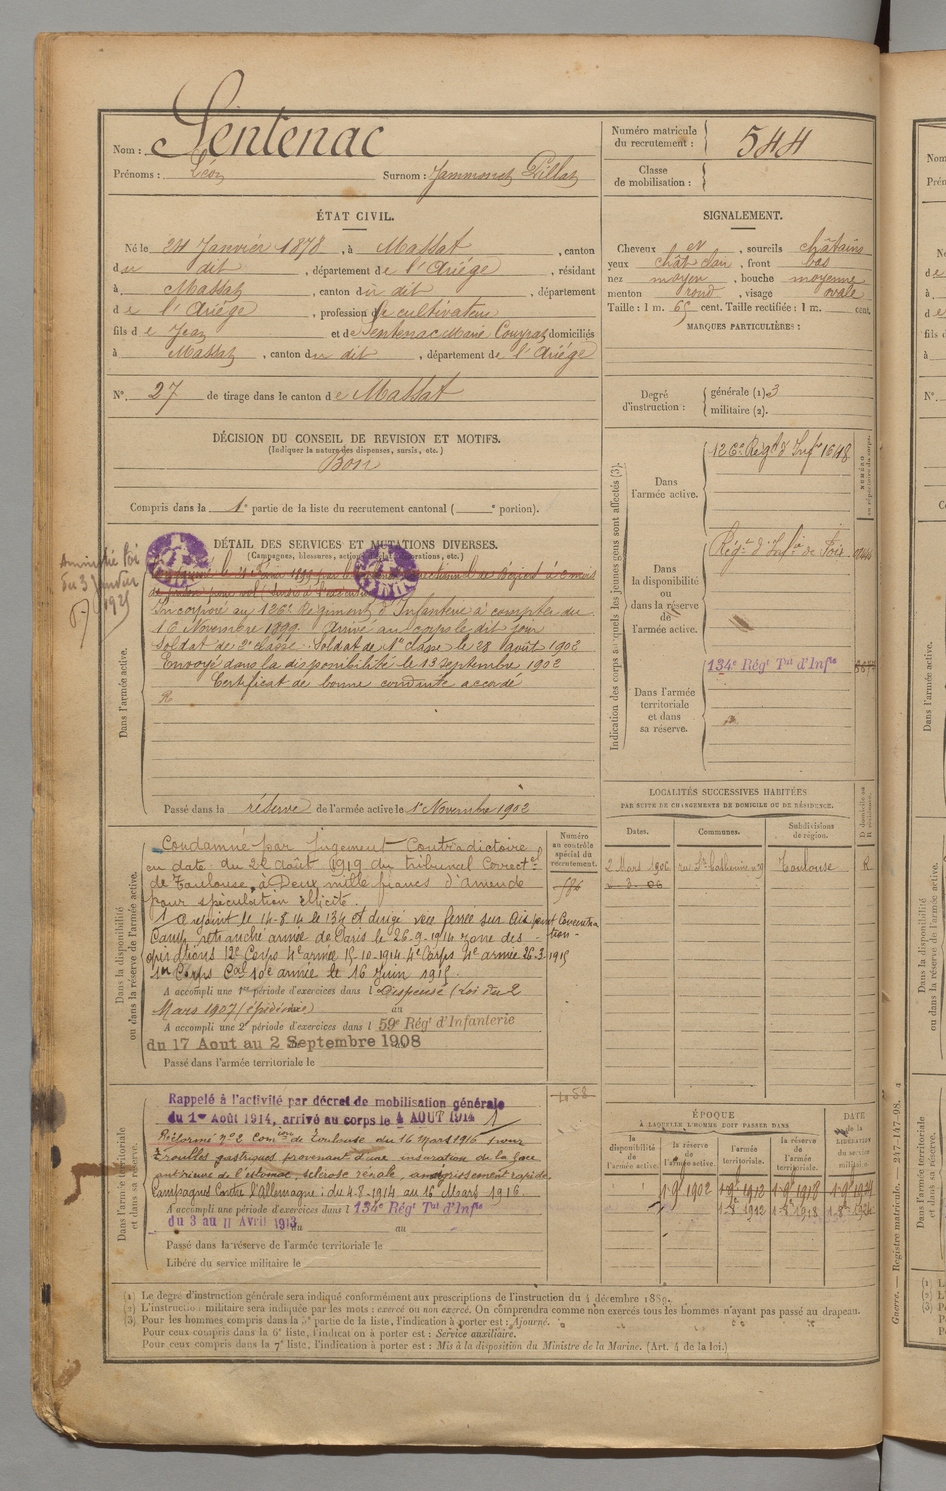 Nom : Sentenac
Prénoms : Léon Surnom : Jammonet Pillat
Numéro matricule du recrutement : 544
Classe de mobilisation :
ÉTAT CIVIL.
Né le 24 Janvier 1878, à Massat, canton
du dit, département de l'Ariége, résidant
à Massat, canton du dit, département
de l'Ariége, profession de cultivateur
fils de Jean et de Sentenac Marie Couyrat domiciliés
à Massat, canton du dit, département de l'Ariége
N° 27 de tirage dans le canton de Massat
SIGNALEMENT.
Cheveux et, sourcils châtains
yeux chât clair, front bas
nez moyen, bouche moyenne
menton rond, visage ovale
Taille : 1 m. 65 cent. Taille rectifiée : 1 m. cent.
MARQUES PARTICULIÈRES :
Degré d'instruction : générale (1). 3
militaire (2).
DÉCISION DU CONSEIL DE REVISION ET MOTIFS.
(Indiquer la nature des dispenses, sursis, etc.)
Bon
Compris dans la 1e partie de la liste du recrutement cantonal ( e portion).
DÉTAIL DES SERVICES ET MUTATIONS DIVERSES.
(Campagnes, blessures, actions d'éclat, décorations, etc.)
Amnistié Loi
du 3 Janvier
1925
Dans l'armée active.
Incorporé au 126e Régiment d'Infanterie à compter du
16 Novembre 1899. Arrivé au corps le dit jour
Soldat de 2e classe. Soldat de 1e classe le 28 Août 1902
Envoyé dans la disponibilité le 13 septembre 1902
Certificat de bonne conduite accordé
R
Passé dans la réserve de l'armée active le 1er Novembre 1902
Indication des corps auxquels les jeunes gens sont affectés (3).
Dans l'armée active.
126e Régt d'Infie 1648
Dans la disponibilité ou dans la réserve de l'armée active.
Régt d'Infie de Foix
Dans l'armée territoriale et dans sa réserve.
134e Régt Tal d'Infie
LOCALITÉS SUCCESSIVES HABITÉES
PAR SUITE DE CHANGEMENTS DE DOMICILE OU DE RÉSIDENCE.
Dates. Communes. Subdivisions de région. D domicile ou R résidence.
2 Mars 1906 rue Ste Catherine Toulouse R
Dans la disponibilité ou dans la réserve de l'armée active.
Numéro au contrôle spécial du recrutement.
586
Condamné par jugement Contradictoire
en date du 26 Août 1919 du tribunal Correctel
de Toulouse, à Deux mille francs d'amende
pour spéculation illicite.
A rejoint le 14-8-14 le 134 et dirigé
Camp retranché armée de Paris le 26-9-1914 zone des
opérations 12e Corps 4e armée 15-10-1914 4e Corps 4e armée 26-3-1915
Corps Cal 10e armée le 16 Juin 1915.
A accompli une 1re période d'exercices dans l Dispensé (Loi du 2
Mars 1907) au
A accompli une 2e période d'exercices dans l 59e Régt d'Infanterie
du 17 Aout au 2 Septembre 1908
Passé dans l'armée territoriale le
Dans l'armée territoriale et dans sa réserve.
Rappelé à l'activité par décret de mobilisation générale
du 1er Août 1914, arrivé au corps le 4 AOUT 1914
Réformé n°2 Comion de Toulouse du 16 mars 1916 pour
Troubles gastriques provenant d'une induration de la face
antérieure de l'estomac, sclérose rénale, amaigrissement rapide.
Campagnes Contre l'Allemagne : du 4-8-1914 au 16 Mars 1916.
A accompli une période d'exercices dans l 134e Régt Tal d'Infie
du 3 au 11 Avril 1913 au
Passé dans la réserve de l'armée territoriale le
Libéré du service militaire le
ÉPOQUE
À LAQUELLE L'HOMME DOIT PASSER DANS
la disponibilité de l'armée active. la réserve de l'armée active. l'armée territoriale. la réserve de l'armée territoriale. DATE de la LIBÉRATION du service militaire.
1-9-1902 1-9-1912 1-9-1918 1-9-1924
1-8-1912 1-8-1918 1-8-1924
(1) Le degré d'instruction générale sera indiqué conformément aux prescriptions de l'instruction du 4 décembre 1889.
(2) L'instruction militaire sera indiquée par les mots : exercé ou non exercé. On comprendra comme non exercés tous les hommes n'ayant pas passé au drapeau.
(3) Pour les hommes compris dans la 5e partie de la liste, l'indication à porter est : Ajourné.
Pour ceux compris dans la 6e liste, l'indication à porter est : Service auxiliaire.
Pour ceux compris dans la 7e liste, l'indication à porter est : Mis à la disposition du Ministre de la Marine. (Art. 4 de la loi.)
Guerre. — Registre matricule. 247-147-98.